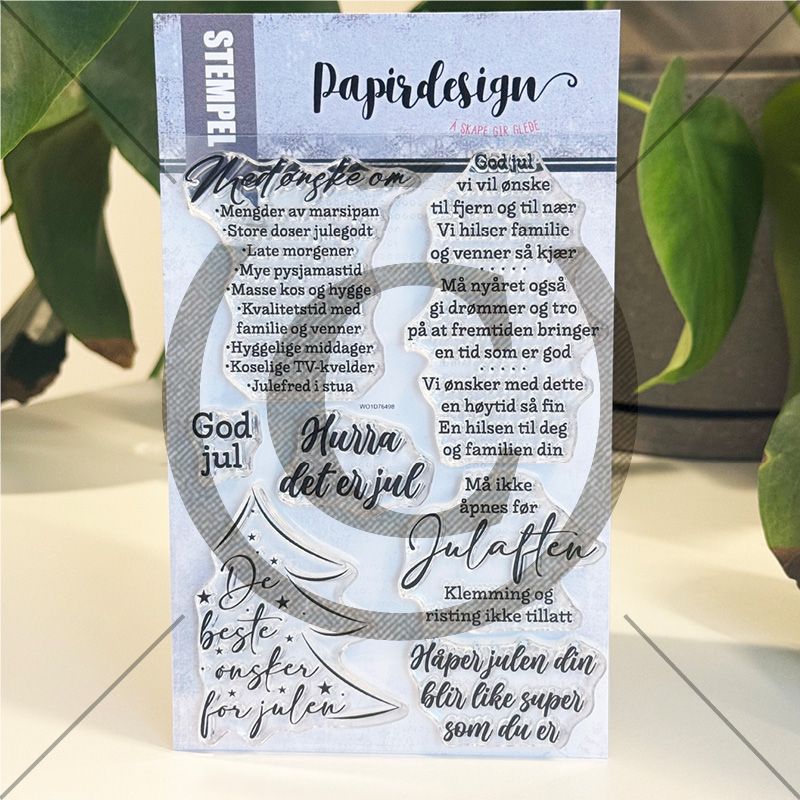 STEMPEL
Papirdesign
Å SKAPE GIR GLEDE
Med ønske om
•Mengder av marsipan
•Store doser julegodt
•Late morgener
•Mye pysjamastid
•Masse kos og hygge
•Kvalitetstid med
familie og venner
•Hyggelige middager
•Koselige TV-kvelder
•Julefred i stua
God jul
vi vil ønske
til fjern og til nær
Vi hilser familie
og venner så kjær
• • • • •
Må nyåret også
gi drømmer og tro
på at fremtiden bringer
en tid som er god
• • • • •
Vi ønsker med dette
en høytid så fin
En hilsen til deg
og familien din
WO1D76498
God
jul
Hurra
det er jul
Må ikke
åpnes før
Julaften
Klemming og
risting ikke tillatt
De
beste
ønsker
for julen
Håper julen din
blir like super
som du er
©